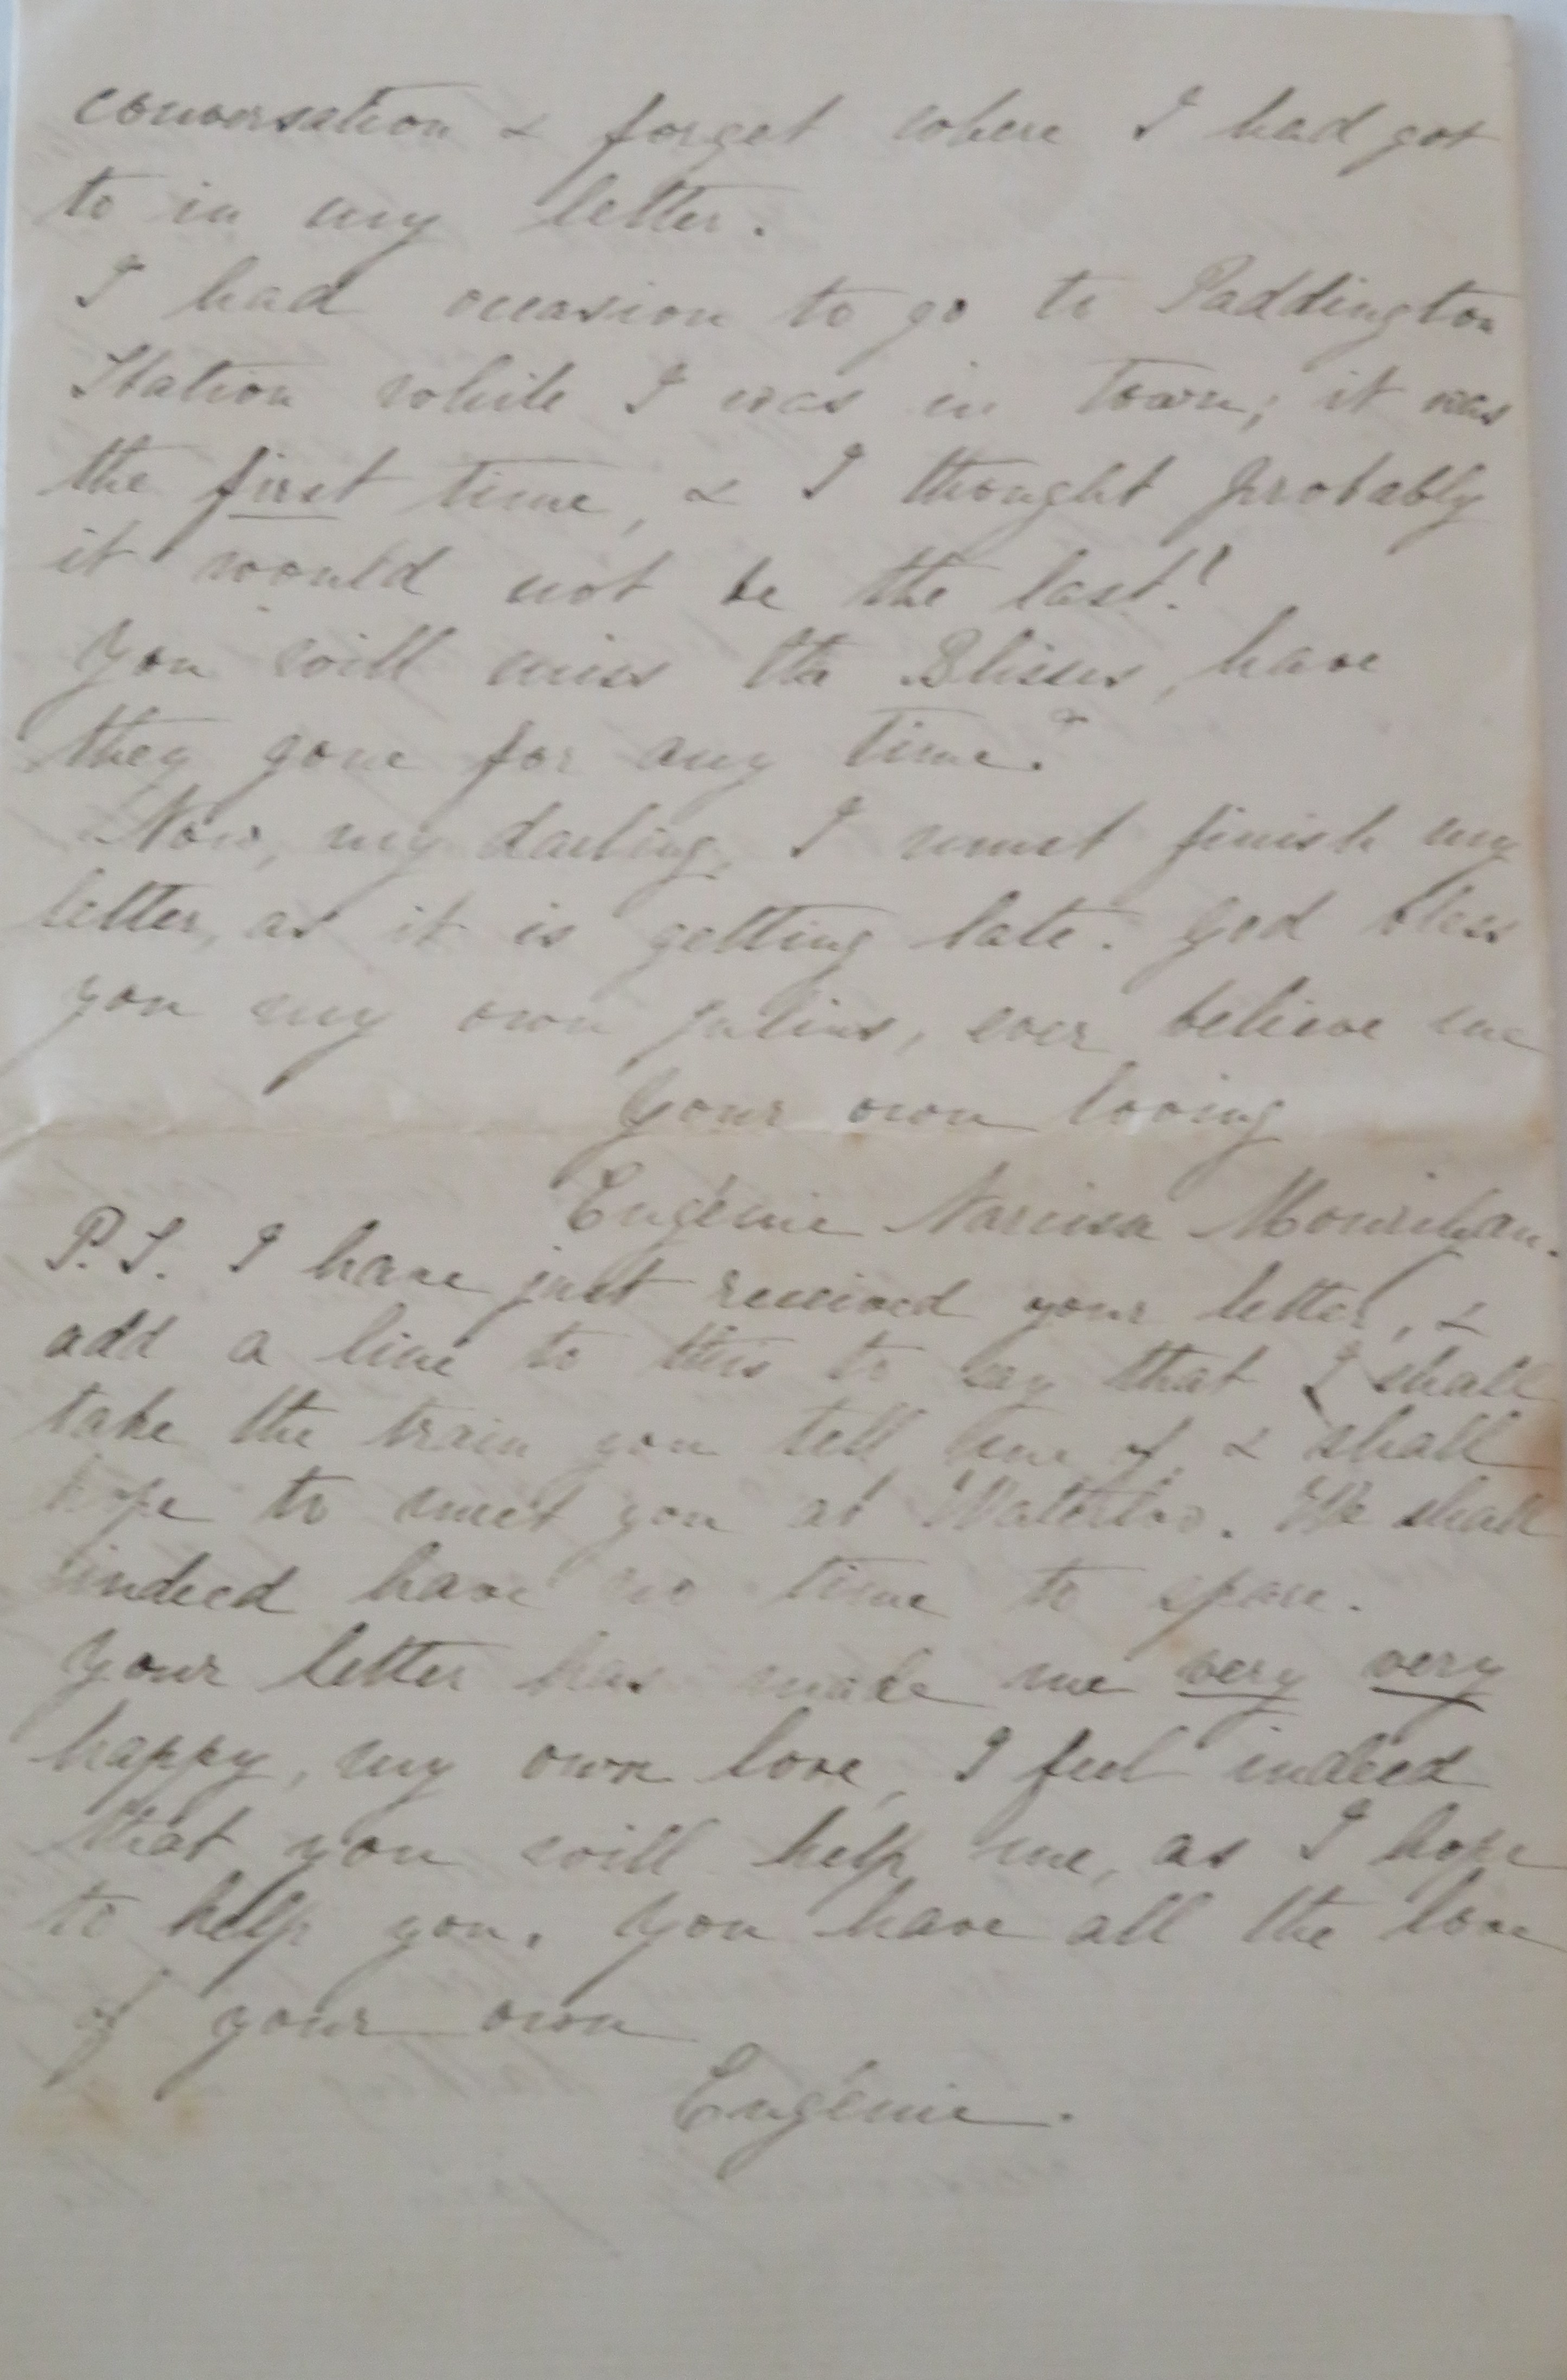 conversation & forget where I had got
to in my letter.
I had occasion to go to Paddington
Station while I was in town; it was
the first time, & I thought probably
it would not be the last!
You will miss the Blisses, have
they gone for any time?
Now, my darling, I must finish my
letter, as it is getting late. God bless
you my own Julius, ever believe me
Your own loving
Eugénie Narcisa
P.S. I have just received your letter, &
add a line to this to say that I shall
take the train you tell me of, & shall
hope to meet you at Waterloo. We shall
indeed have no time to spare.
Your letter has made me very very
happy, my own love, I feel indeed
that you will help me, as I hope
to help you. You have all the love
of your own
Eugénie.